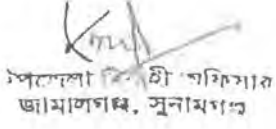 উপজেলা নির্বাহী অফিসার
জামালগঞ্জ, সুনামগঞ্জ